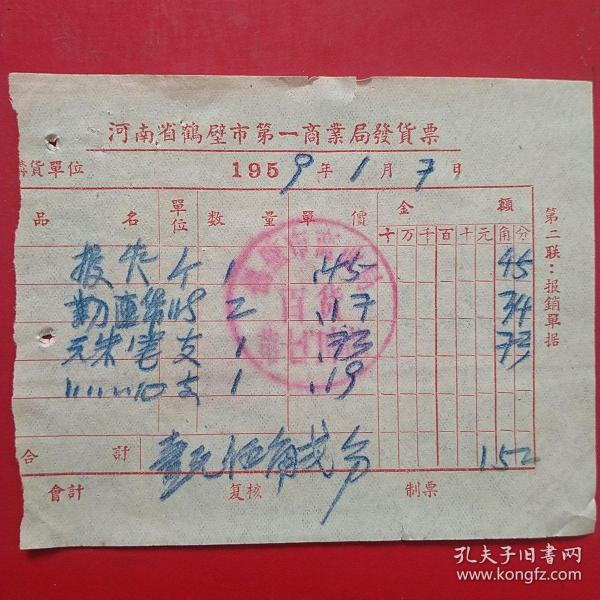 河南省鶴壁市第一商業局發貨票
購貨單位 1959年1月7日
品名 單位 數量 單價 金額
十万千百十元角分
报夹 个 1 .45 45
2 .17 34
支 1 .53
支 1 .19
合計 壹元伍角弍分 152
會計 复核 制票
第二联：报銷單据
孔夫子旧书网
www.kongfz.com